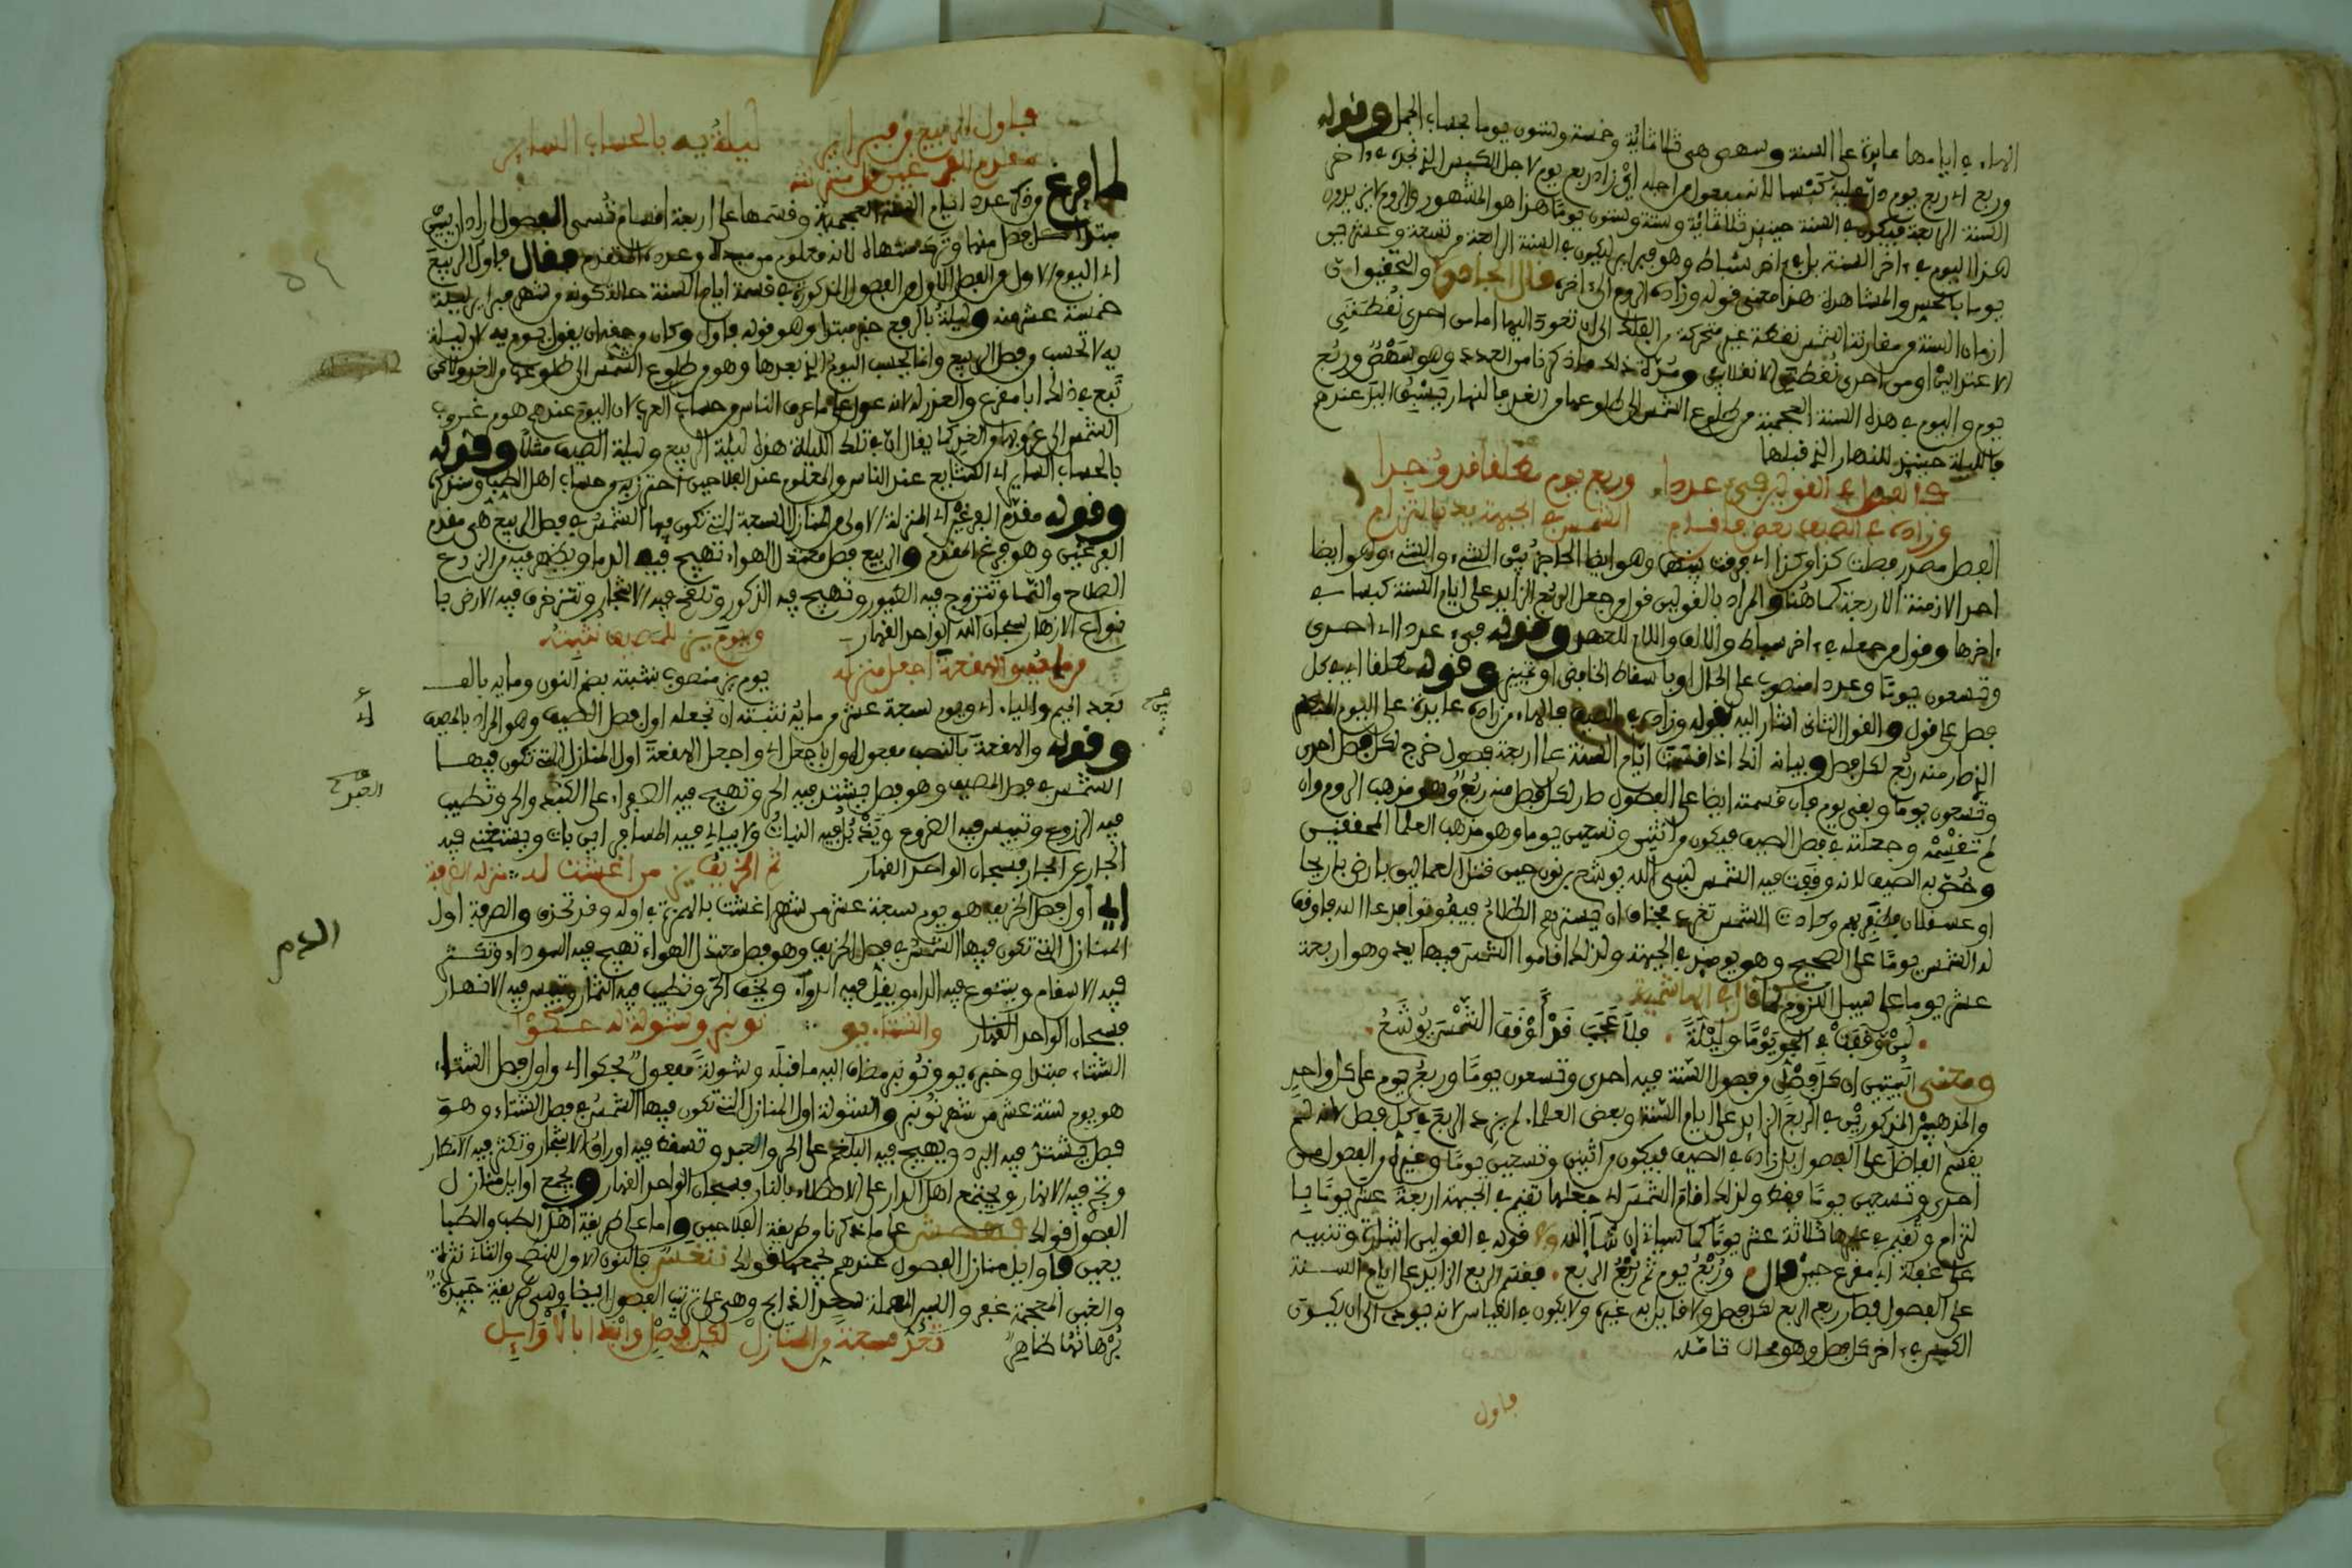 الهاء في ايامها عايدة على السنة وسهى هي ثلاثمائة وخمسة وستون يوما بحساب الجمل وقوله
وربع اي ربع يوم
السنة الرابعة فيكون في السنة حينئذ ثلاثمائة وستة وستون يوما هذا هو المشهور والروم
هذا اليوم في ءاخر السنة بل في ءاخر شباط وهو فبراير ليكون في السنة الرابعة من تسعة وعشرين
يوما بالكبس والمشاهرة هذا معنى قوله وزاده الروم الى ءاخره قال الجادري والتحقيق ان
ازمان السنة من مفارقة الشمس نقطة غير متحركة من الفلك الى ان تعود اليها اما من احدى نقطتي
الاعتدالين او من احدى نقطتي الانقلابين ومدة ذلك ما ذكرنا من العدد وهو شسه وربع
يوم واليوم في هذه السنة العجمية من طلوع الشمس الى طلوعها من الغد فالنهار يسبق اليل عندهم
فالليلة حينئذ للنهار الذي قبلها
وربع يوم مطلقا قد وجدا
وزاده في الصيف بعض فاقسام الشمس في الجبهة يد بالتزام
الفصل مصدر فصلت كذا وكذا اي فرقت بينهما وهو ايضا الحاجز بين الشيء والشيء وهو ايضا
احد الازمنة الاربعة كما هنا والمراد بالقولين قول من جعل الربع الزايد على ايام السنة كبسا في
ءاخرها وقول من جعله في ءاخر شباط والالف واللام للعهد وقوله فيء عددا اي احدى
وتسعون يوما وعددا منصوب على الحال او باسقاط الخافض او تمييز وقوله مطلقا اي في كل
فصل على قول والقول الثاني اشار اليه بقوله وزاده في الصيف فالهاء من زاده عايدة على اليوم
الذي صار منه ربع لكل فصل وبيانه انك اذا قسمت ايام السنة على اربعة فصول خرج لكل فصل احدى
وتسعون يوما وبقي يوم فان قسمته ايضا على الفصول صار لكل فصل منه ربع وهو مذهب الروم وان
لم تقسمه وجعلته في فصل الصيف فيكون من اثنين وتسعين يوما وهو مذهب العلما المحققين
وخص به الصيف لانه وقفت فيه الشمس لنبي الله يوشع بن نون حين قتل العماليق بارض اريحا
لم الشمس يوما على الصحيح وهو يومئذ في الجبهة ولذلك اقاموا الشمس فيها يد وهو اربعة
عشر يوما على سبيل اللزوم
لئن وقفت في الجو يوما وليلة فلا عجب قد أوقف الشمس يوشع
ومعنى البيتين ان كل فصل من فصول السنة فيه احدى وتسعون يوما وربع يوم على كل واحد
من المذهبين المذكورين في الربع الزايد على ايام السنة وبعض العلماء لم يزد الربع في كل فصل لانه لم
يقسم الفاضل على الفصول بل زاده في الصيف فيكون من اثنين وتسعين يوما وغيره من الفصول من
احدى وتسعين يوما فقط ولذلك اقام الشمس اي جعلها تقيم في الجبهة اربعة عشر يوما با
لتزام وتقيم في غيرها ثلاثة عشر يوما كما سياتي ان شاء الله وفي قوله في القولين اشارة وتنبيه
على غفلة ابي مقرع حين قال وربع يوم ثم ربع الربع فقسم الربع الزايد على ايام السنة
على الفصول فصار ربع الربع لكل فصل ولا قايل به غيره ولا يكون في القياس لانه يودي الى ان يكون
الكبس في ءاخر كل فصل وهو محال تامله
فاول
فاول الربيع من فبراير ليلة يه بالحساب الساير
لما فرغ من ذكر عدد ايام السنة العجمية وقسمها على اربعة اقسام تسمى الفصول اراد ان يبين
مبتدا كل فصل منها وترك منتهاه لانه معلوم من مبدئه وعدده المتقدم فقال فاول الربيع
اي اليوم الاول من الفصل الاول من الفصول المذكورة في قسمة ايام السنة حالة كونه من شهر فبراير ليلة
خمسة عشر منه وليلة بالرفع خبر مبتدا وهو قوله فاول وكان من حقه ان يقول يوم يه لان ليلة
يه لا تحسب من فصل الربيع وانما يحسب اليوم الذي بعدها وهو من طلوع الشمس الى طلوعها من الغد ولاكن
تبع في ذلك ابا مقرع والعذر له لانه عول على ما عرف الناس من حساب العرب لان اليوم عندهم هو من غروب
الشمس الى غروبها من الغد كما يقال ان في تلك الليلة هذه ليلة الربيع وليلة الصيف مثلا وقوله
بالحساب الساير اي الشايع عند الناس والمعلوم عند الفلاحين احترز به من حساب اهل الطب وسنذكره
وقوله مقدم الفرغين اي المنزلة الاولى من المنازل السبعة التي تكون فيها الشمس في فصل الربيع هي مقدم
الفرغين وهو فرغ المقدم والربيع فصل معتدل الهواء تهيج فيه الدما ويظهر فيه من الزرع
الطلاح والنما وتتزوج فيه الطيور وتهيج فيه الذكور وتلقح فيه الاشجار وتتزخرف فيه الارض با
نواع الازهار سبحان الله الواحد القهار
ويوم يز للمصيف نثبته
من مايه والهقعة اجعل منزله
يوم يز منصوب بنثبته بضم النون ومايه بالف
بعد الميم والياء اي ويوم سبعة عشر من مايه نثبته ان نجعله اول فصل الصيف وهو المراد بالمصيف
وقوله والهقعة بالنصب مفعول اول باجعل اي واجعل الهقعة اول المنازل التي تكون فيها
الشمس في فصل المصيف وهو فصل يشتد فيه الحر وتهيج فيه الصفراء على الكبد والحر وتطيب
فيه الزروع وتيبس فيه الضروع ويذبل فيه النبات ولا يبالي فيه المسافر اين بات ويستغني فيه
الجار عن الجار فسبحان الواحد القهار
ثم الخريف يز من اغشت له منزله الصرفة
اي اول فصل الخريف هو يوم سبعة عشر من شهر اغشت بالهمزة في اوله وقد تحذف والصرفة اول
المنازل التي تكون فيها الشمس في فصل الخريف وهو فصل معتدل الهواء تهيج فيه السوداء وتكثر
فيه الاسقام ويتنوع فيه الداء ويقل فيه الدواء ويخف الحر وتطيب فيه الثمار وتيبس فيه الانهار
فسبحان الواحد القهار والشتاء يو نونبر وشولة له حكوا
الشتاء مبتدا وخبره يو ونونبر مضاف اليه ما قبله وشولة مفعول بحكوا اي واول فصل الشتاء
هو يوم ستة عشر من شهر نونبر والشولة اول المنازل التي تكون فيها الشمس في فصل الشتاء وهو
فصل يشتد فيه البرد ويهيج فيه البلغم على الحر والخبر وتسقط فيه اوراق الاشجار وتكثر فيه الامطار
وتجري فيه الانهار ويجتمع اهل الدار على الاصطلاء بالنار فسبحان الواحد القهار ويجمع اوايل منازل
الفصول قولك فهصش على ما ذكرنا من طريقة الفلاحين واما على طريقة اهل الطب والطبا
يعيين فاوايل منازل الفصول عندهم يجمعها قولك
والغين المعجمة غفر والسين المهملة سعد الذابح وهي على ترتيب الفصول ايضا وهي طريقة جيدة
برهانها ظاهر تحز سبعة من المنازل لكل فصل وابدا بالاوايل